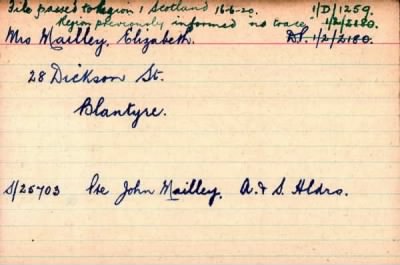 File passed to Region 1 Scotland 16-6-20. 1/D/1259.
Region previously informed "no trace" 1/2/2180.
Mrs Mailley, Elizabeth. D.P. 1/2/2180.
28 Dickson St.
Blantyre.
S/25703 Pte John Mailley, A. & S. Hldrs.